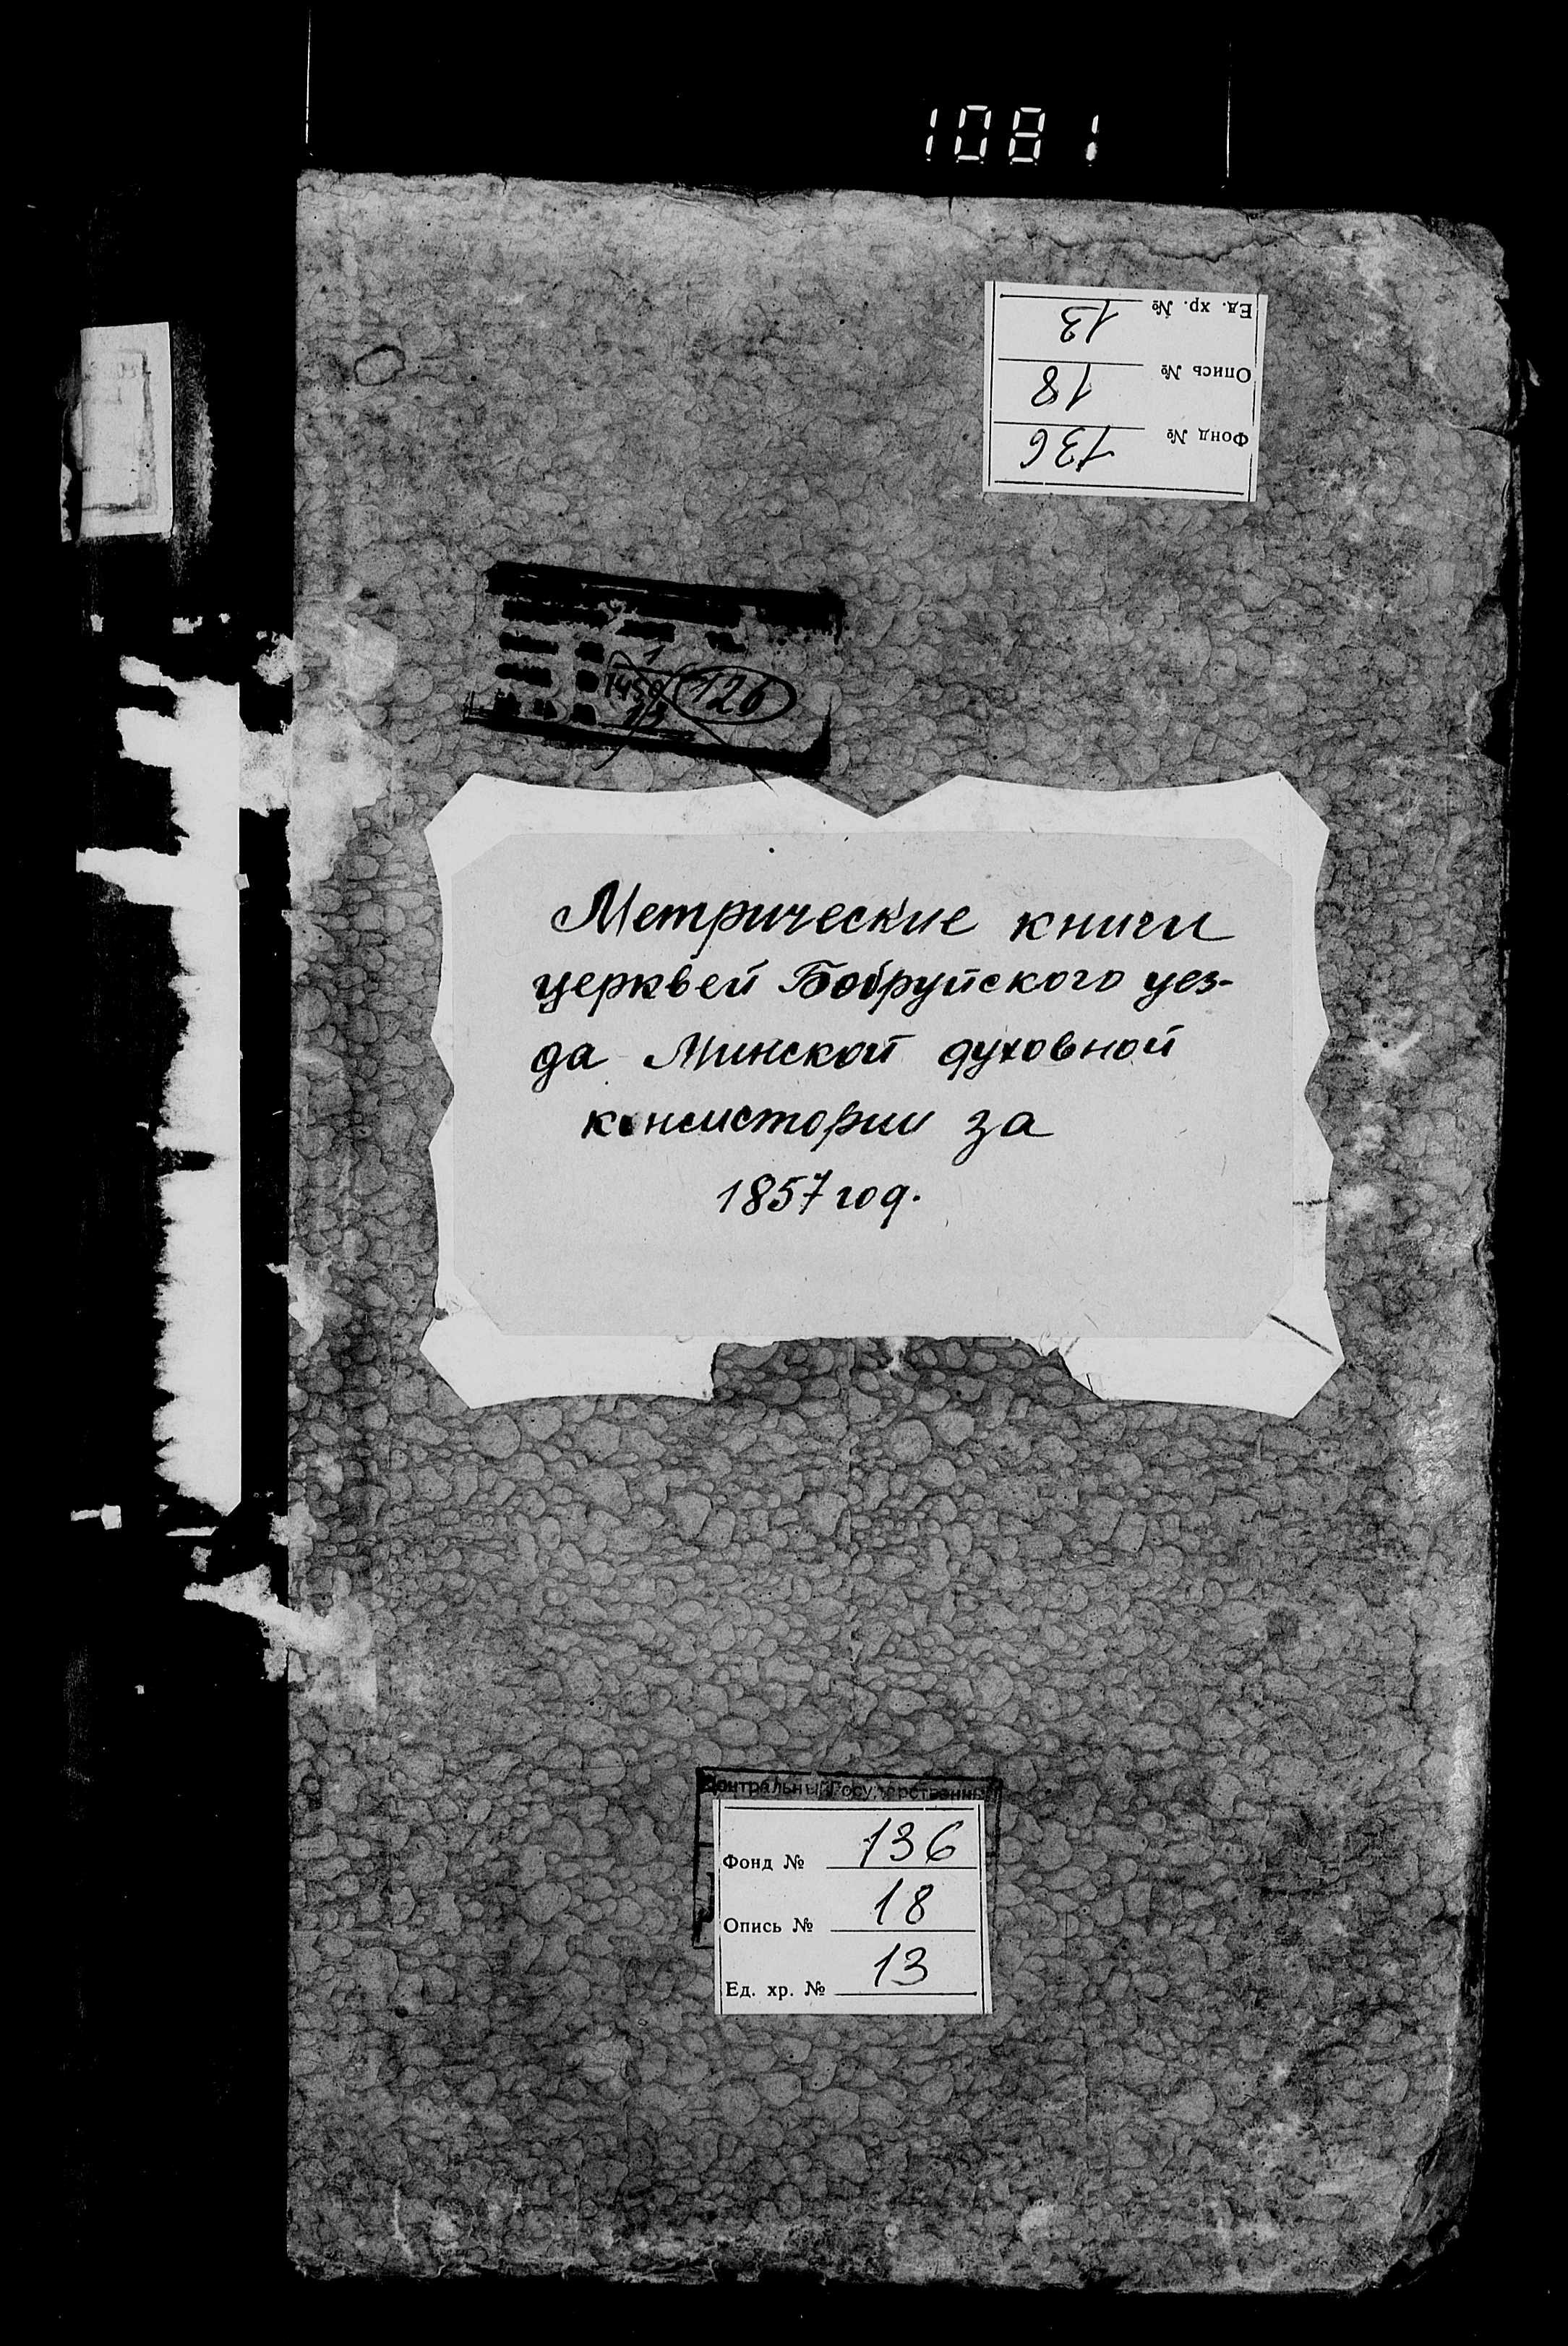 1081
Ед. хр. № 13
Опись № 18
Фонд № 136
1
1450
13
126
Метрические книги
церквей Бобруйского уез-
да Минской духовной
консистории за
1857 год.
Центральный Государственный
Фонд № 136
Опись № 18
Ед. хр. № 13